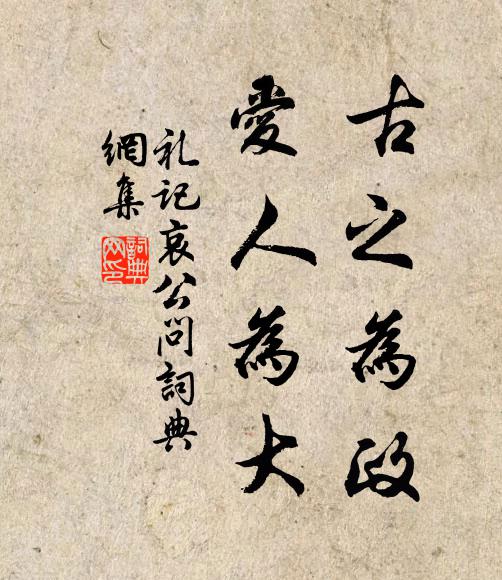 古之為政
愛人為大
礼记哀公问詞典
網集
詞典
网印